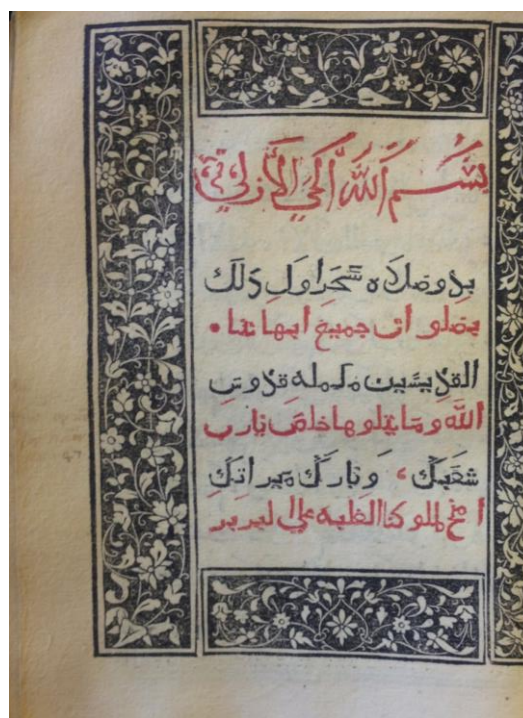 بسم الله الحي الازلي
بدو صلاه سحر اول ذلك
بصلوات جميع ابهاتنا •
القديسين مكمله قدوس
الله وما يتلوها خلص يارب
شعبك، وبارك ميراتك
امنح لملوكنا الغلبه علي لبربر